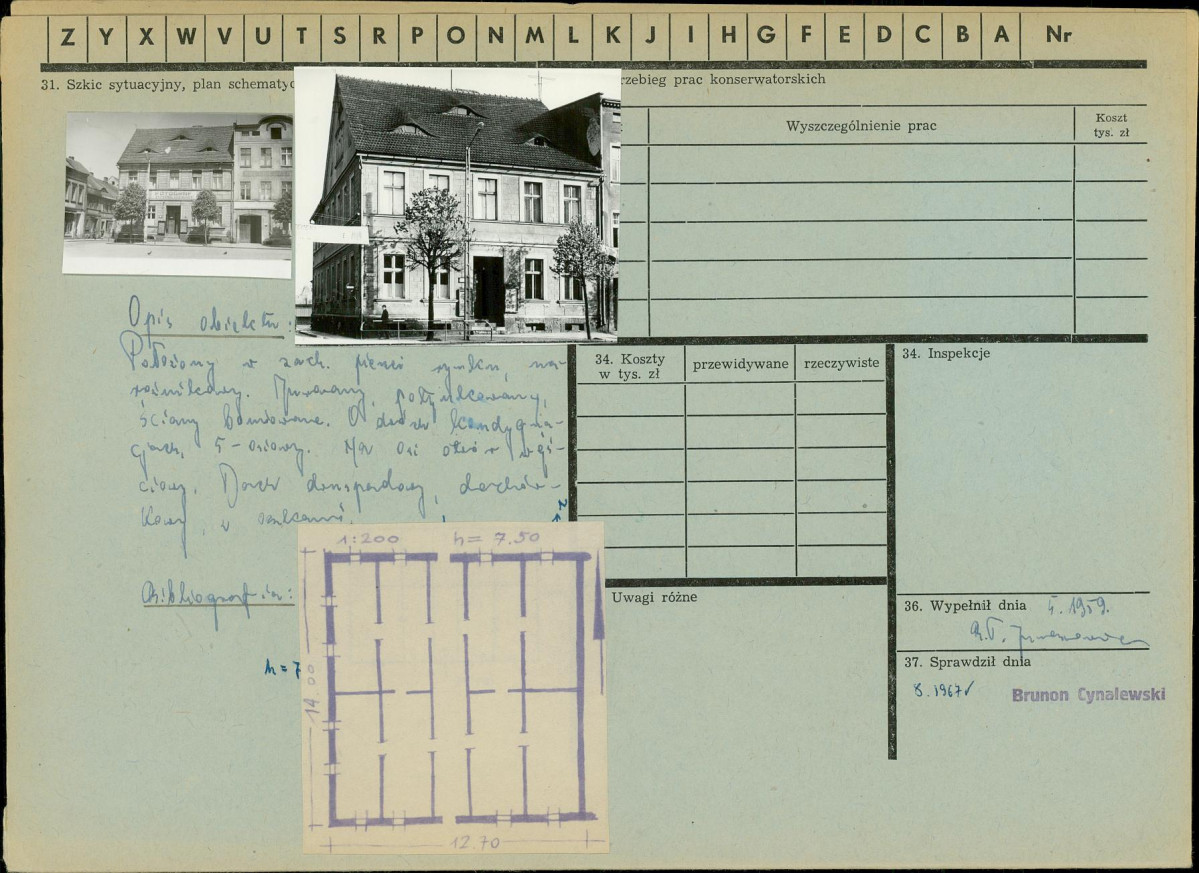 Z Y X W V U T S R P O N M L K J I H G F E D C B A Nr
31. Szkic sytuacyjny, plan schematyc
rzebieg prac konserwatorskich
Wyszczególnienie prac
Koszt
tys. zł
Opis obiektu:
Położony w zach. pierzei rynku, na-
rożnikowy. Murowany, potynkowany,
ściany boniowane. O dwóch kondygna-
cjach, 5-osiowy. Na osi otwór wejś-
ciowy. Dach dwuspadowy, dachów-
kowy,
Bibliografia:
h=7
34. Koszty
w tys. zł
przewidywane
rzeczywiste
34. Inspekcje
Uwagi różne
36. Wypełnił dnia 5.1959.
37. Sprawdził dnia
8.1967
Brunon Cynalewski
1:200 h= 7.50
14.00
12.70